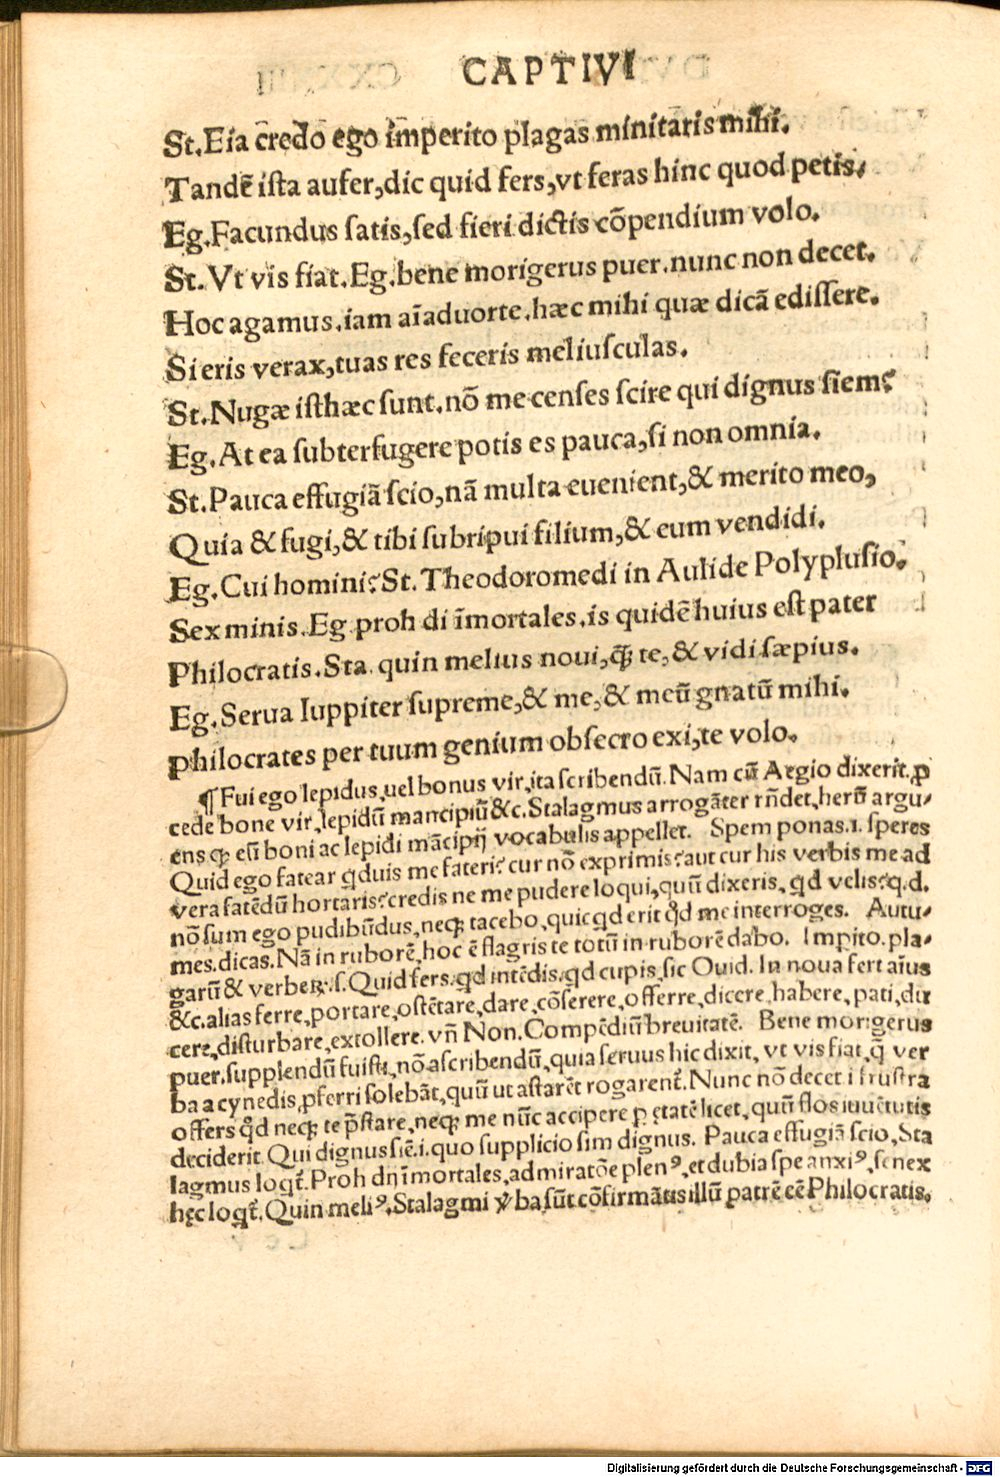 CAPTIVI
St. Eia credo ego imperito plagas minitaris mihi.
Tandē ista aufer, dic quid fers, vt feras hinc quod petis.
Eg. Facundus satis, sed fieri dictis cōpendium volo.
St. Vt vis fiat. Eg. bene morigerus puer. nunc non decet.
Hoc agamus. iam aīaduorte. hæc mihi quæ dicā edissere.
Si eris verax, tuas res feceris meliusculas.
St. Nugæ isthæc sunt. nō me censes scire qui dignus siem?
Eg. At ea subterfugere potis es pauca, si non omnia.
St. Pauca effugiā scio, nā multa euenient, & merito meo,
Quia & fugi, & tibi subripui filium, & eum vendidi.
Eg. Cui homini? St. Theodoromedi in Aulide Polyplusio.
Sex minis. Eg proh di īmortales. is quidē huius est pater
Philocratis. Sta. quin melius noui, ꝙ te, & vidi sæpius.
Eg. Serua Iuppiter supreme, & me, & meū gnatū mihi.
philocrates per tuum genium obsecro exi, te volo.
¶ Fui ego lepidus, uel bonus vir, ita scribendū. Nam cū Aegio dixerit. ꝓ
cede bone vir, lepidū mancipiū &c. Stalagmus arrogāter rn̄det, herū argu-
ens ꝙ eū boni ac lepidi mācipij vocabulis appellet. Spem ponas .i. speres
Quid ego fatear qduis me fateri? cur nō exprimis? aut cur his verbis me ad
vera fatēdū hortaris? credis ne me pudere loqui, quū dixeris, qd velis? q.d.
nō sum ego pudibūdus, neqꝫ tacebo, quicqd erit qd me interroges. Autu-
mes. dicas. Nā in ruborē, hoc ē flagris te totū in ruborē dabo. Impito. pla-
garū & verberꝝ .s. Quid fers. qd intēdis. qd cupis, sic Ouid. In noua fert aīus
&c. alias ferre, portare, ostētare, dare, cōserere, offerre, dicere, habere, pati, du
cere, disturbare, extollere. vn̄ Non. Compēdiū breuitatē. Bene morigerus
puer. supplendū fuisti, nō ascribendū, quia seruus hic dixit, vt vis fiat, q̄ ver
ba a cynedis, pferri solebāt, quū ut astarēt rogarent̄. Nunc nō decet i frustra
offers qd neqꝫ te p̄stare, neqꝫ me nūc accipere ꝑ ętatē licet, quū flos iuuētutis
deciderit. Qui dignus siē .i. quo supplicio sim dignus. Pauca effugiā scio, Sta
lagmus loqt̄. Proh dn̄ īmortales, admiratōe plenꝰ, et dubia spe anxiꝰ, senex
hęc loqt̄. Quin meliꝰ. Stalagmi v̄ba sūt cōfirmātis illū patrē eē Philocratis.
Digitalisierung gefördert durch die Deutsche Forschungsgemeinschaft - DFG